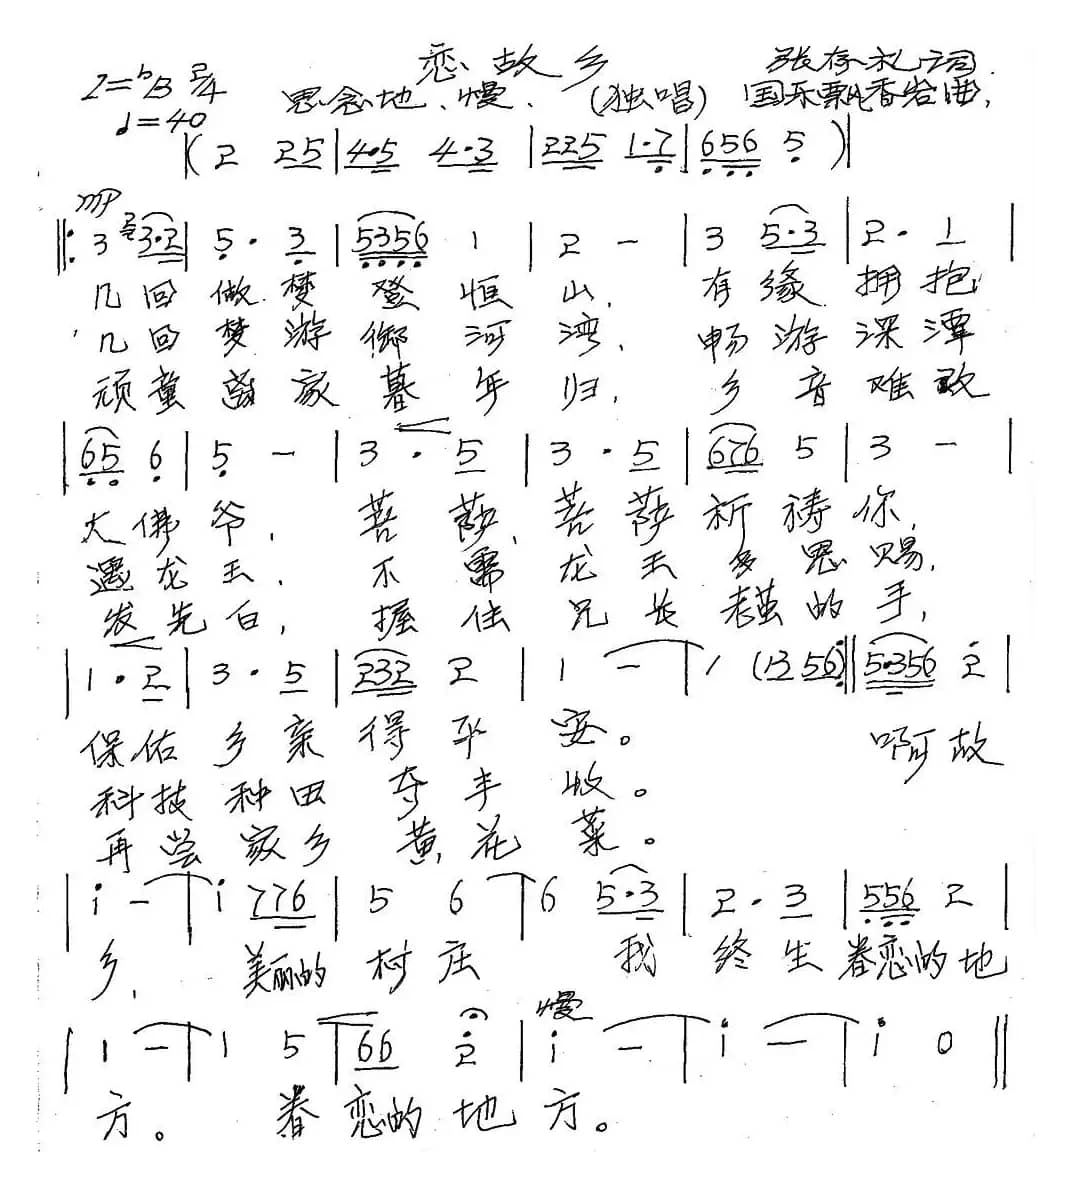 恋故乡
1=ᵇB 2/4 思念地、慢、(独唱) 张存礼词
♩=40 国乐飘香岩曲
(2 25|4·5 4·3|225 1·7|656 5)|
mp
|: 3 3·2|5· 3|5356 1|2 -|3 5·3|2· 1|
几回做梦登恒山,有缘拥抱
几回梦游御河湾,畅游深潭
顽童离家暮年归,乡音难改
|65 6|5 -|3· 5|3· 5|676 5|3 -|
大佛爷,菩萨,菩萨祈祷你,
遇龙王,不需龙王多恩赐,
发先白,握住兄长老茧的手,
|1· 2|3· 5|232 2|1 -|1 (13 56):|5·356 2|
保佑乡亲得平安。啊故
科技种田夺丰收。
再尝家乡黄花菜。
|i -|i 776|5 6|6 5·3|2· 3|556 2|
乡,美丽的村庄 我终生眷恋的地
慢
|1 -|1 5|66 2|i -|i -|i 0||
方。眷恋的地方。